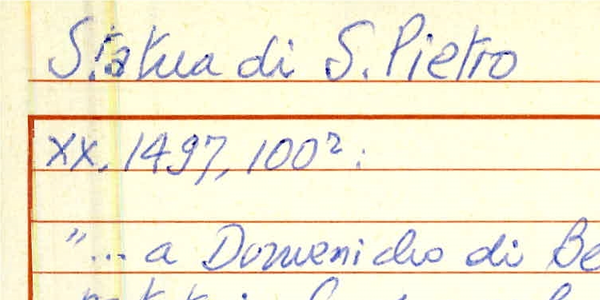 Statua di S. Pietro
XX, 1497, 100²:
"... a Domenicho di